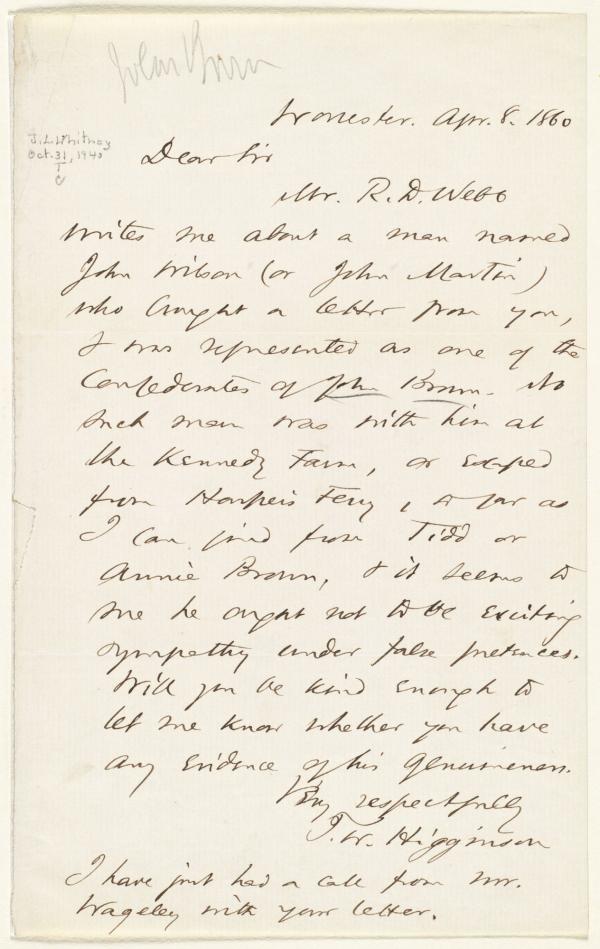 John Brown
Worcester. Apr. 8. 1860
J. L. Whitney
Oct. 31, 1940
Dear Sir
Mr. R. D. Webb
writes me about a man named
John Wilson (or John Martin)
who brought a letter from you,
& was represented as one of the
Confederates of John Brown. No
such man was with him at
the Kennedy Farm, or escaped
from Harper's Ferry, so far as
I can find from Tidd or
Annie Brown, & it seems to
me he ought not to be exciting
sympathy under false pretences.
Will you be kind enough to
let me know whether you have
any evidence of his genuineness.
Very respectfully
T. W. Higginson
I have just had a call from Mr.
Wageley with your letter.